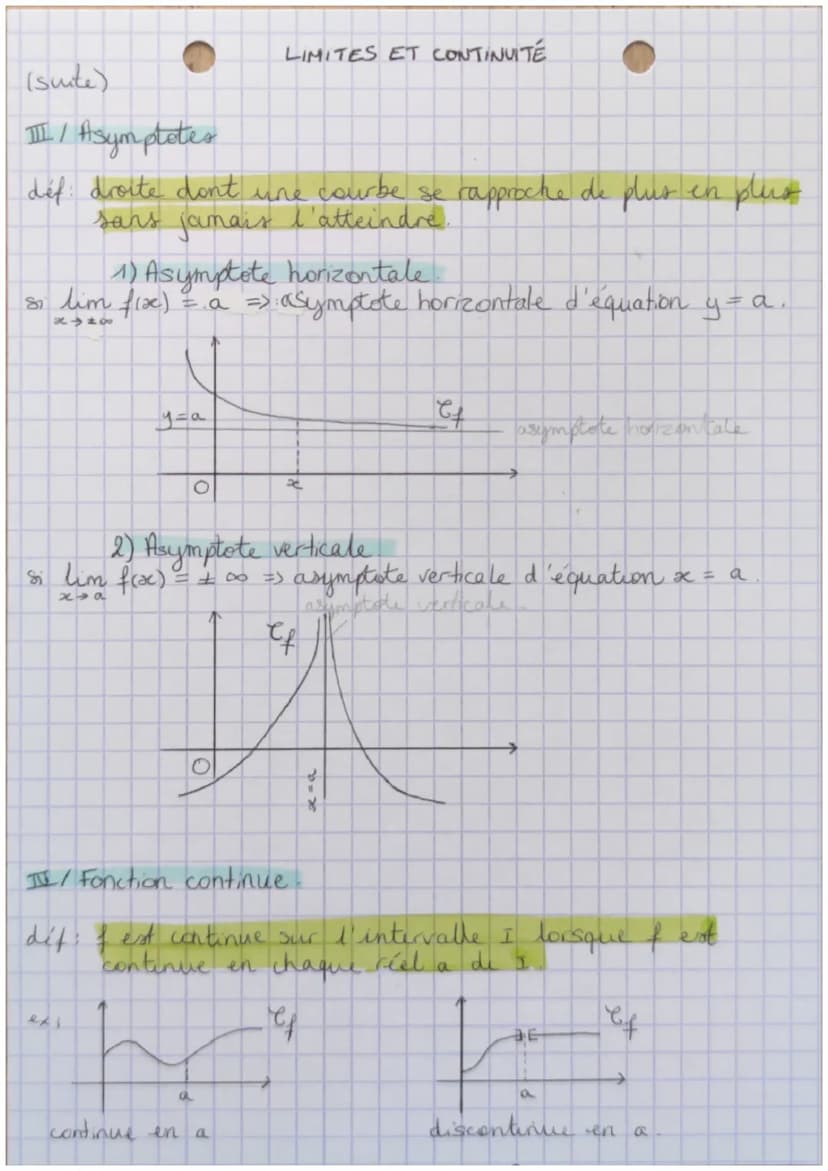 LIMITES ET CONTINUITÉ
(suite)
III / Asymptotes
déf: droite dont une courbe se rapproche de plus en plus
sans jamais l'atteindre.
1) Asymptote horizontale
si lim f(x) = a => asymptote horizontale d'équation y = a.
x → ±∞
y=a
Cf
asymptote horizontale
O
x
2) Asymptote verticale
si lim f(x) = ± ∞ => asymptote verticale d'équation x = a.
x → a
asymptote verticale
Cf
O
x = a
IV / Fonction continue.
déf: f est continue sur l'intervalle I lorsque f est
continue en chaque réel a de I.
ex:
Cf
Cf
] [
a
a
continue en a
discontinue en a.